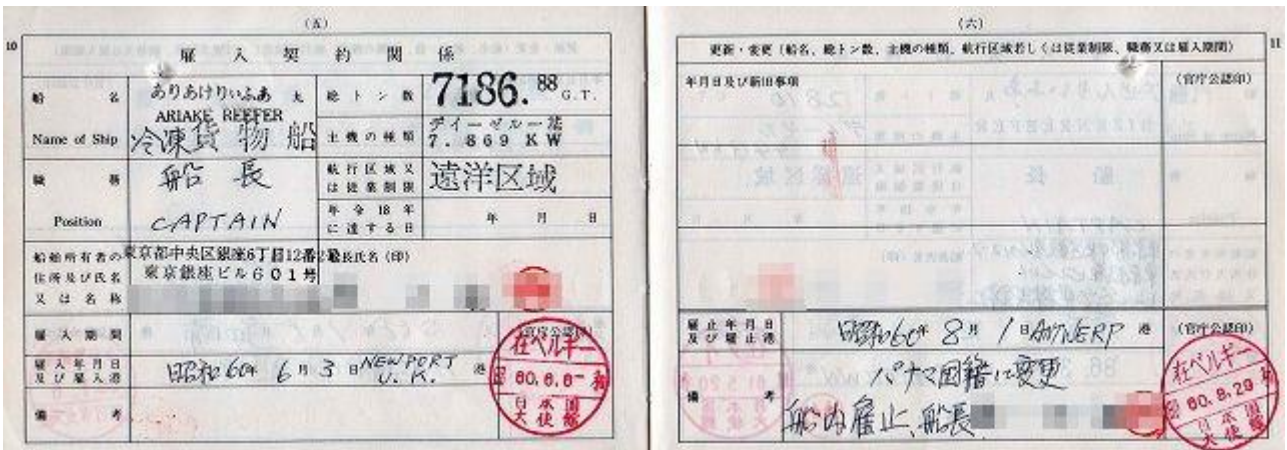 (五)
10
雇入契約関係
船名
Name of Ship
ありあけりいふあ 丸
ARIAKE REEFER
冷凍貨物船
総トン数
7186.88 G.T.
主機の種類
ディーゼル一基
7.869 KW
職務
Position
船長
CAPTAIN
航行区域又は従業制限
遠洋区域
年令18年に達する日
年 月 日
船舶所有者の住所及び氏名又は名称
東京都中央区銀座6丁目12番
東京銀座ビル601号
船長氏名(印)
雇入期間
(官庁公認印)
雇入年月日及び雇入港
昭和60年 6月3日 NEWPORT U.K. 港
備考
在ベルギー
60.6.6
日本国大使館
(六)
11
更新・変更(船名、総トン数、主機の種類、航行区域若しくは従業制限、職務又は雇入期間)
年月日及び新旧事項
(官庁公認印)
雇止年月日及び雇止港
昭和60年 8月1日 ANTWERP 港
(官庁公認印)
備考
パナマ国籍に変更
船内雇止、船長
在ベルギー
60.8.29
日本国大使館